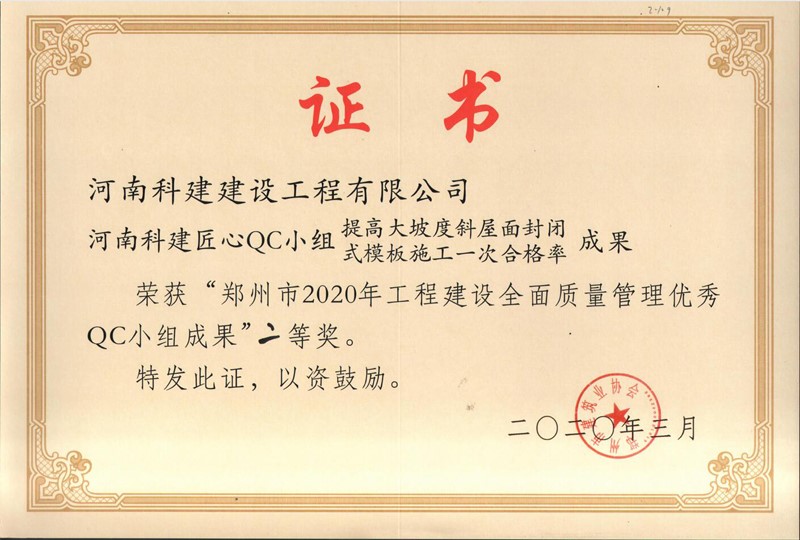 证书
河南科建建设工程有限公司
河南科建匠心QC小组 提高大坡度斜屋面封闭
式模板施工一次合格率 成果
荣获“郑州市2020年工程建设全面质量管理优秀
QC小组成果”二等奖。
特发此证，以资鼓励。
郑州市建筑业协会
二〇二〇年三月